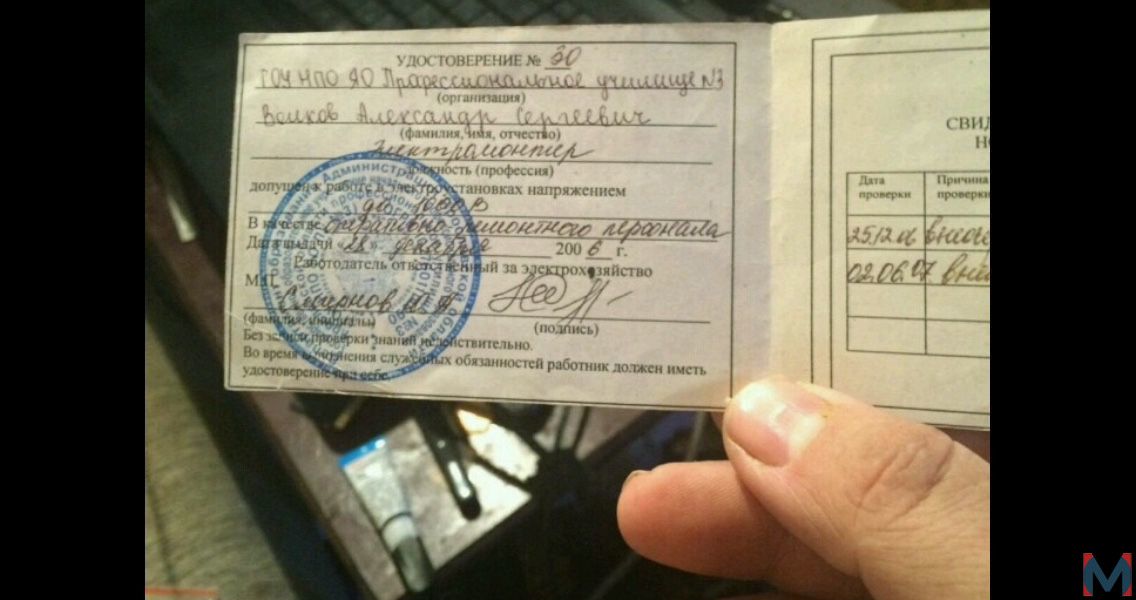 УДОСТОВЕРЕНИЕ № 30
ГОУ НПО ЯО Профессиональное училище №3
(организация)
Волков Александр Сергеевич
(фамилия, имя, отчество)
Электромонтер
должность (профессия)
допущен к работе в электроустановках напряжением
до 1000 В
В качестве оперативно-ремонтного персонала
Дата выдачи «28» декабря 2006 г.
Работодатель ответственный за электрохозяйство
М.П.
Смирнов
(фамилия, инициалы)
(подпись)
Без записи проверки знаний недействительно.
Во время исполнения служебных обязанностей работник должен иметь
удостоверение при себе.
СВИД
Дата проверки
Причина проверки
25.12.06
02.06.07.
M